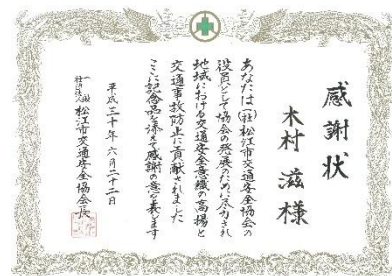 感謝状
木村 滋 様
あなたは(一社)松江市交通安全協会の
役員として協会の発展のために尽力され
地域における交通安全意識の高揚と
交通事故防止に貢献されました
ここに記念品を添えて感謝の意を表します
平成三十年六月二十二日
一般社団法人 松江市交通安全協会長